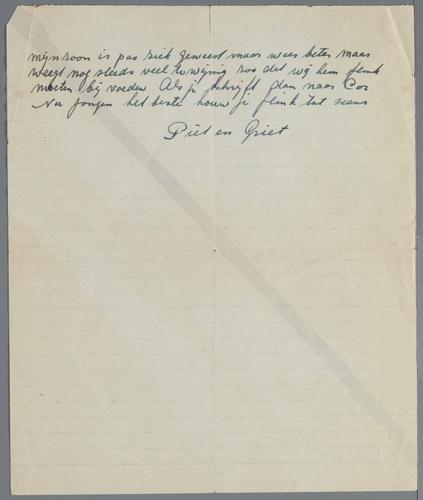 mijn zoon is pas ziek geweest maar weer beter maar
weegt nog steeds veel te wijnig zoo dat wij hem flink
moeten bij voeden Als je schrijft dan naar Cor
Nu jongen het beste houw je flink tot siens
Piet en Griet